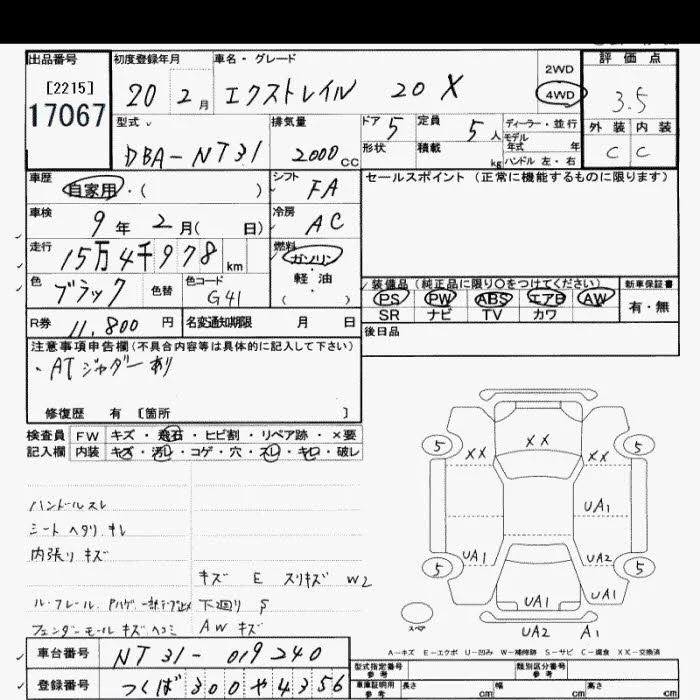 出品番号 初度登録年月 車名・グレード 2WD 評価点
[2215] 20 2月 エクストレイル 20X 4WD 3.5
17067
型式 排気量 ドア 5 定員 5人 ディーラー・並行 外装 内装
DBA-NT31 2000CC 形状 積載 kg モデル年式 年 ハンドル 左・右 C C
車歴 シフト セールスポイント (正常に機能するものに限ります)
自家用・( ) FA
車検 9年2月( 日) 冷房 AC
走行 15万4千978km 燃料 ガソリン
色 ブラック 色替 色コード G41 軽油 ( )
装備品 (純正品に限り○をつけてください) 新車保証書
PS PW ABS エアB AW 有・無
SR ナビ TV カワ
R券 11,800円 名変通知期限 月 日 後日品
注意事項申告欄 (不具合内容等は具体的に記入して下さい)
・ATジャダー有り
修復歴 有 [箇所 ]
検査員 FW キズ・飛石・ヒビ割・リペア跡・×要
記入欄 内装 キズ・汚レ・コゲ・穴・スレ・キレ・破レ
ハンドルスレ
シートヘタリ キレ
内張りキズ
キズ E スリキズ W2
ル-フレール、Pハゲ 一部テープ止メ 下廻り S
フェンダーモールキズヘコミ AWキズ
5 XX XX XX 5
UA1
UA1 UA2
5 5
UA1 UA1
スペア
UA2 A1
A-キズ E-エクボ U-凹み W-補修跡 S-サビ C-腐食 XX-交換済
車台番号 NT31-019240
型式指定番号 参考 類別区分番号 参考
登録番号 つくば300や4356
車庫証明用 参考 長さ cm 幅 cm 高さ cm